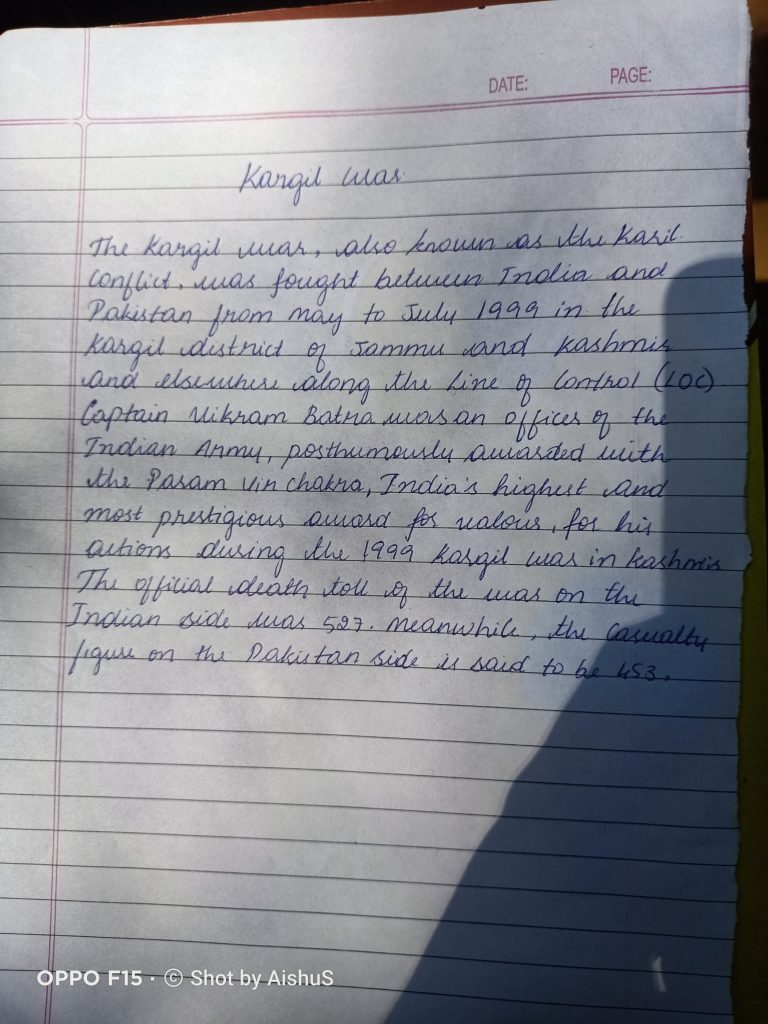 DATE: PAGE:
Kargil war.
The Kargil war, also known as the Karil
conflict, was fought between India and
Pakistan from may to July 1999 in the
Kargil district of Jammu and Kashmir
and elsewhere along the Line of Control (LOC)
Captain Vikram Batra was an officer of the
Indian Army, posthumously awarded with
the Param Vir chakra, India's highest and
most prestigious award for valour, for his
actions during the 1999 Kargil war in Kashmir
The official death toll of the war on the
Indian side was 527. Meanwhile, the casualty
figure on the Pakistan side is said to be 453.
OPPO F15 · © Shot by AishuS